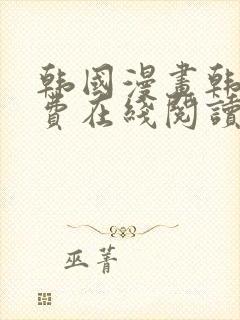 韩國漫畫韩
費在綫閱讀
巫菁